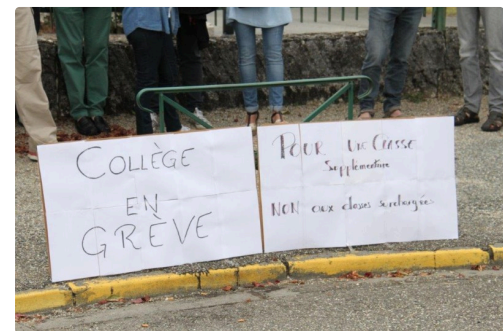 COLLÈGE
EN
GRÈVE
POUR UNE CLASSE
Supplémentaire
NON aux classes surchargées